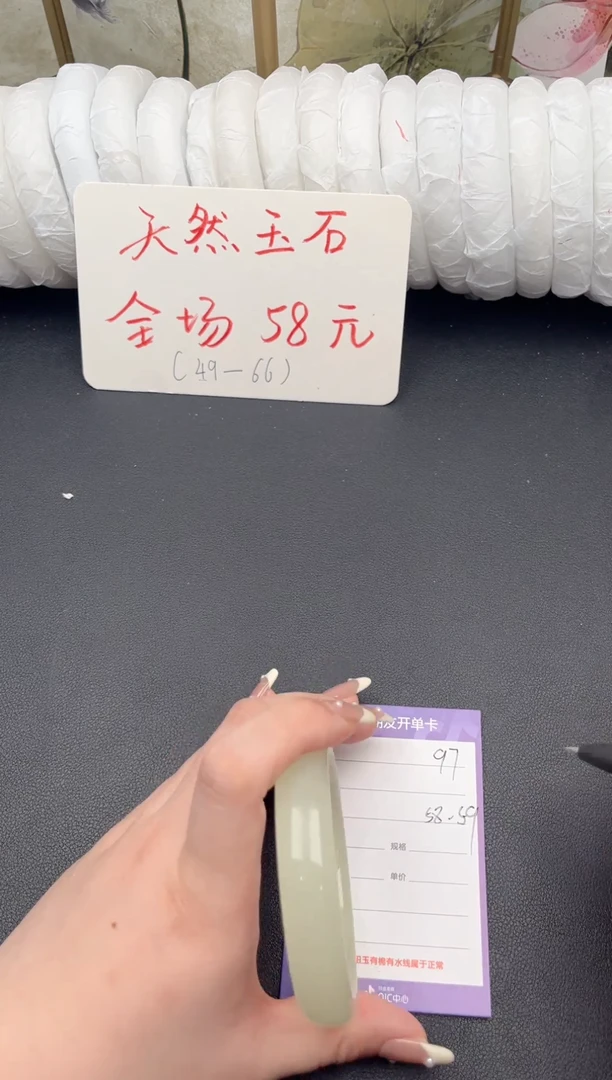 天然玉石
全场 58 元
(49-66)
友开单卡
97
58-59
规格
单价
玉有棉有水线属于正常
QIC中心